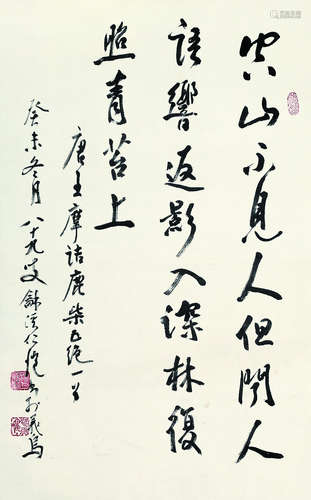 空山不見人但聞人
語響返影入深林復
照青苔上
唐王摩詰鹿柴五絕一首
癸未冬月八十九叟錦溪仁愷書於義烏